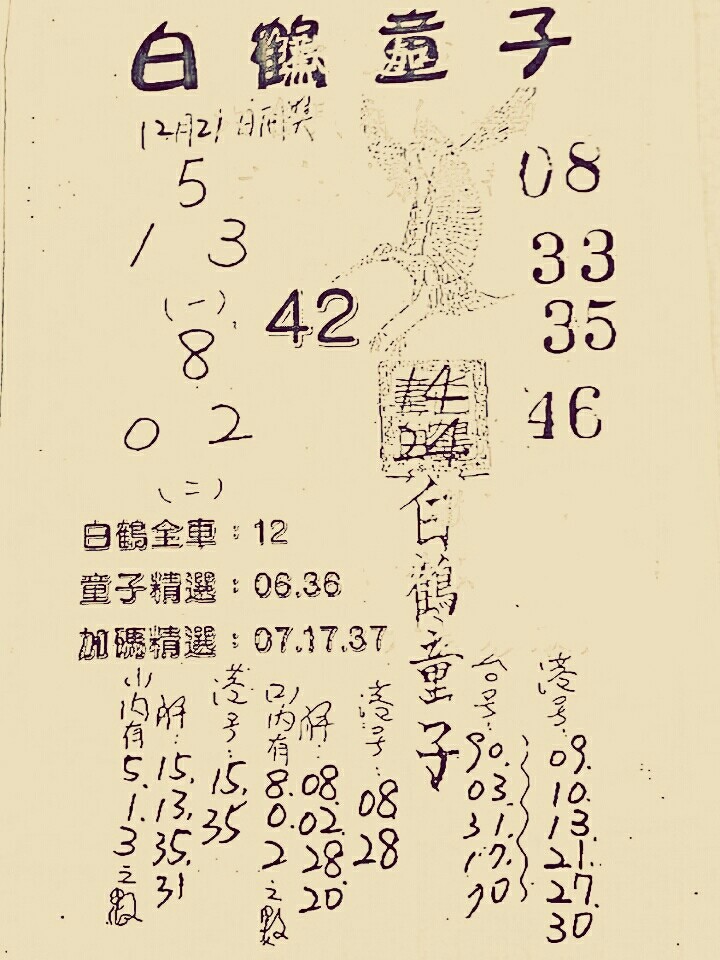 白鶴童子
12月21日開獎
5
1 3
(一)
8
0 2
(二)
42
08
33
35
46
14
24
白鶴童子
白鶴全車：12
童子精選：06.36
加碼精選：07.17.37
(1)內有5.1.3之數
解：15.13.35.31
港号：15.35
(2)內有8.0.2之數
解：08.02.28.20
港号：08 28
台号：90.03.31.17.70
港号：09.10.13.21.27.30